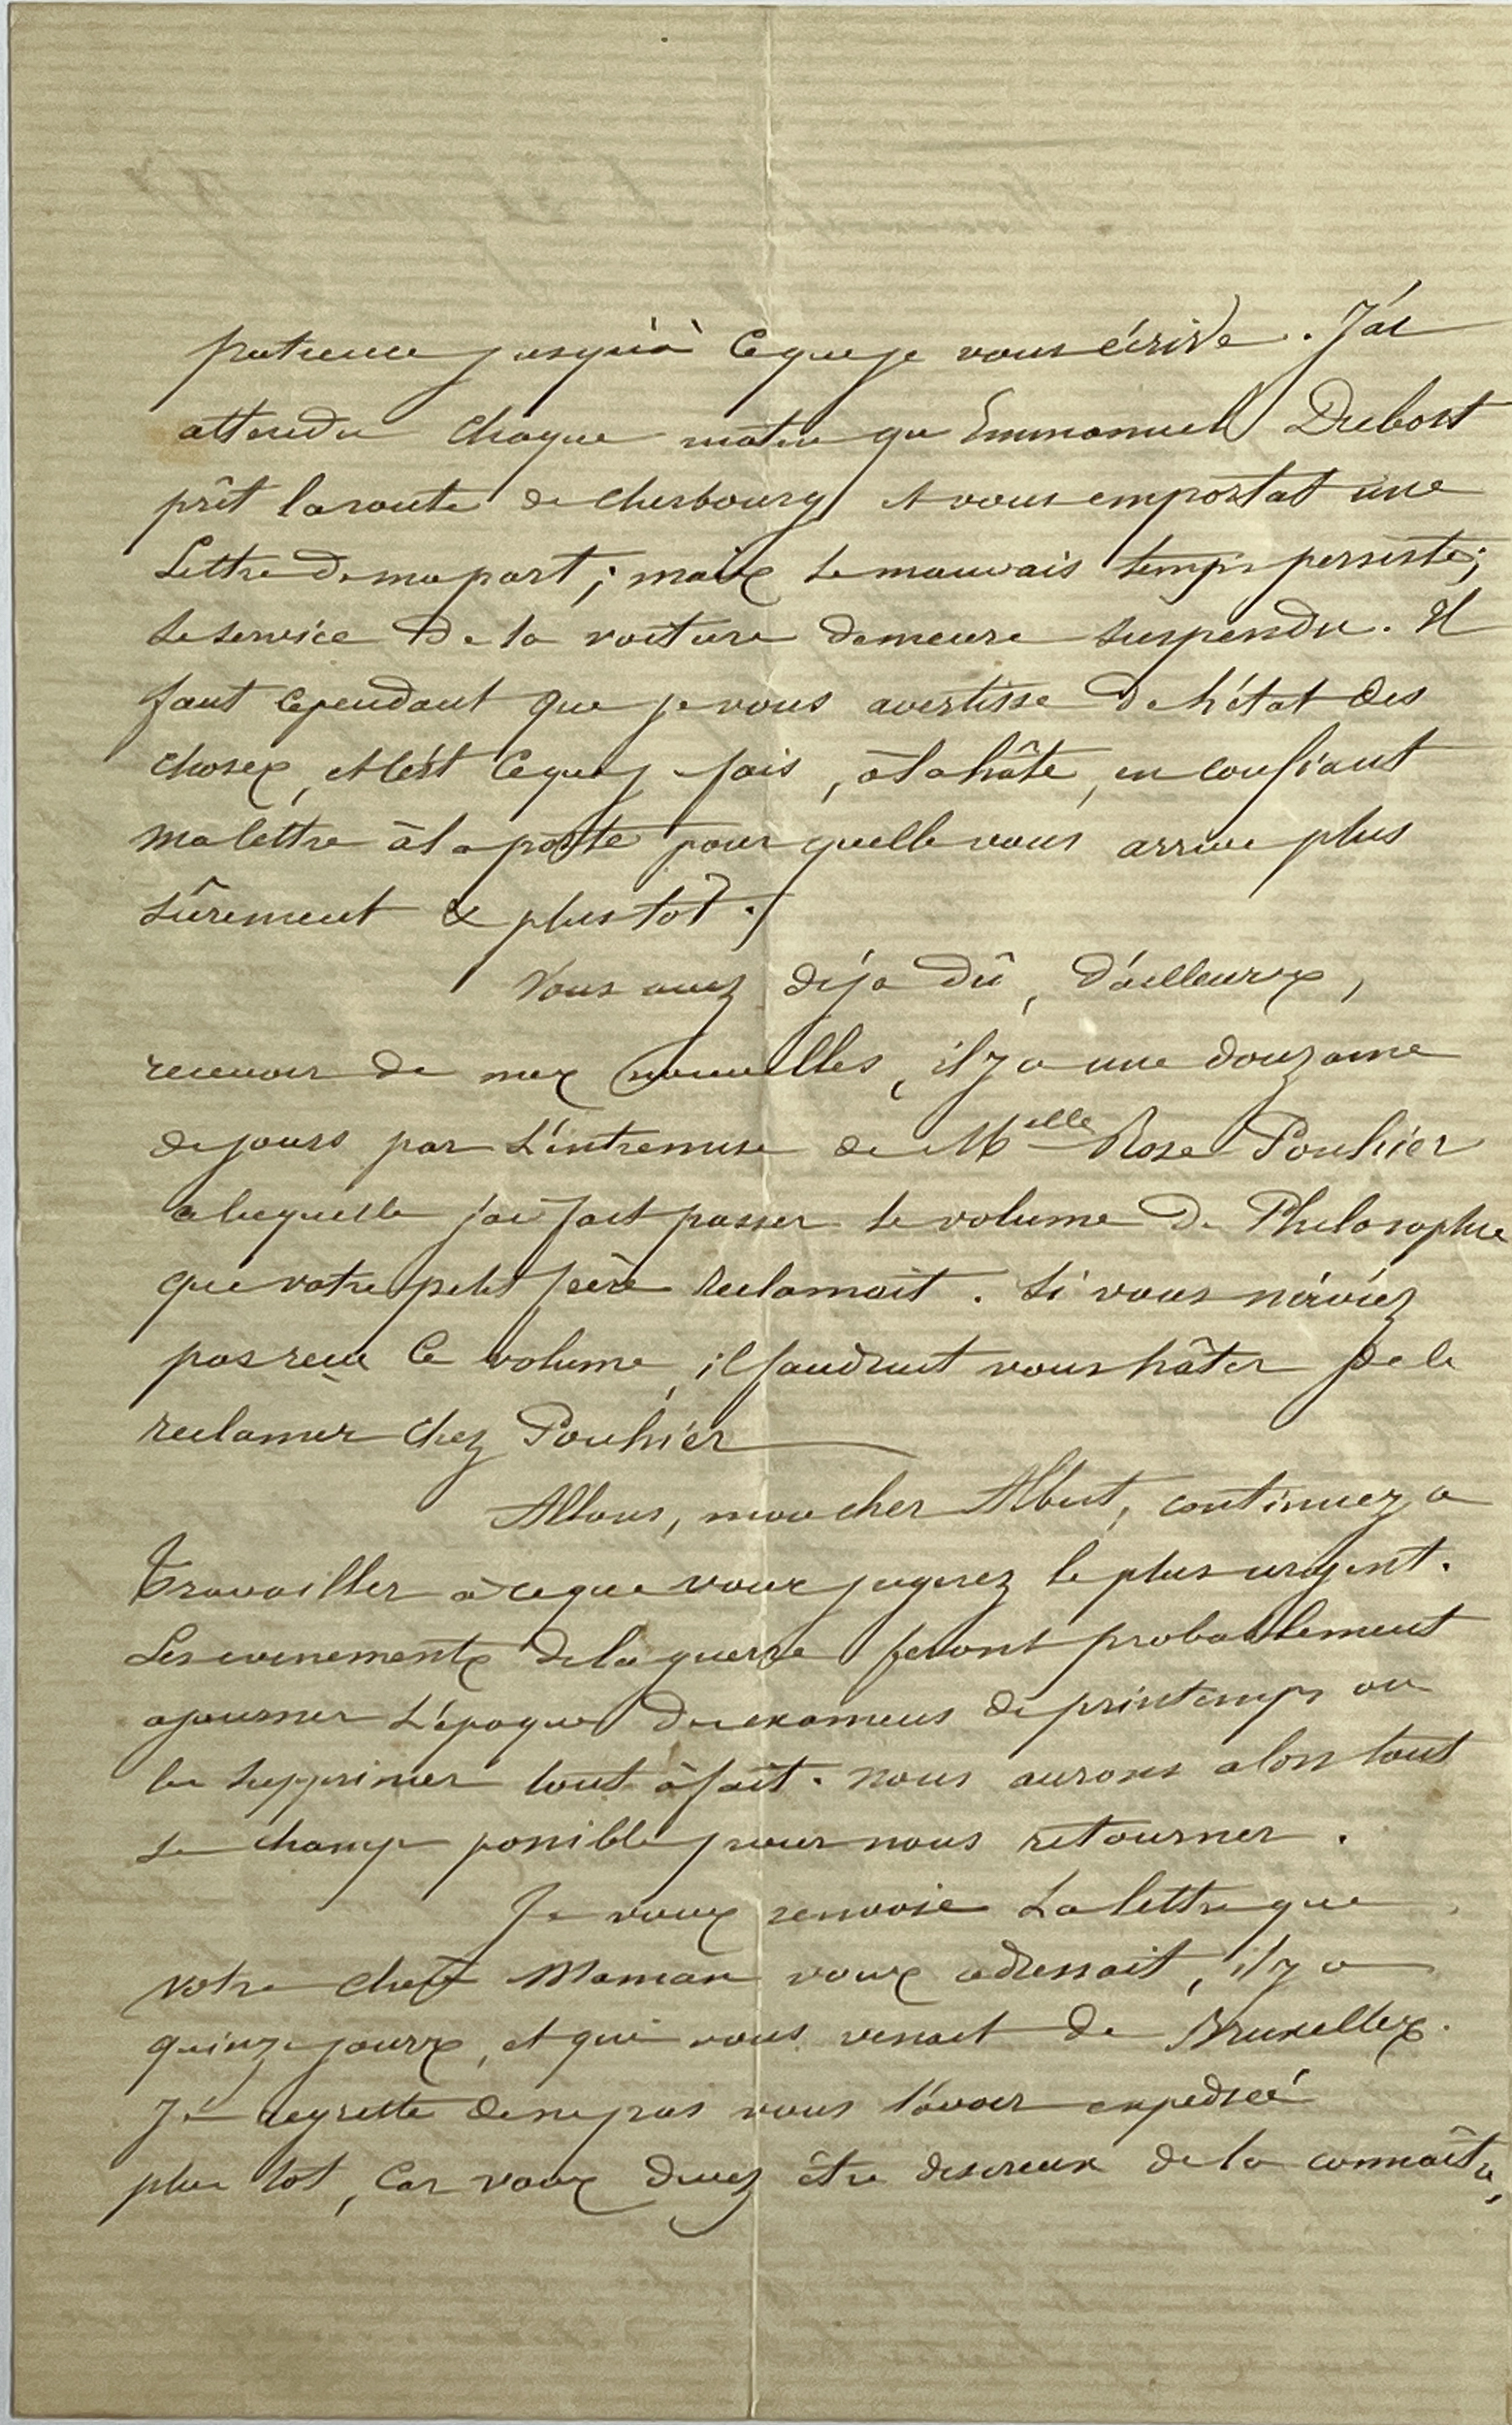 patience jusqu'à ce que je vous écrive. J'ai
attendu chaque matin qu'Emmanuel Dubost
prît la route de Cherbourg et vous emportat une
Lettre de ma part ; mais le mauvais temps persiste ;
le service de la voiture demeure suspendu. Il
faut cependant que je vous avertisse de l'état des
choses, et c'est ce que j fais, à la hâte, en confiant
ma lettre à la poste pour quelle vous arrive plus
sûrement & plus tôt.
Vous avez déja dû, d'ailleurs,
recevoir de mes nouvelles, il y a une douzaine
de jours par l'entremise de Melle Rose Pouhier
a laquelle j'ai fait passer le volume de Philosophie
que votre petit père reclamait. Si vous n'aviez
pas reçu ce volume, il faudrait vous hâter de le
reclamer chez Pouhier
Allons, mon cher Albert, continuez a
travailler à ce que vous jugerez le plus urgent.
Les evenements de la guerre feront probablement
ajourner l'époque des examens de printemps ou
les supprimer tout à fait. nous aurons alors tout
le champ possible pour nous retourner.
Je vous renvoie la lettre que
votre chère Maman vous adressait, il y a
quinze jours, et qui vous venait de Bruxelles.
Je regrette de ne pas vous l'avoir expediée
plus tot, car vous devez être desireux de la connaître,